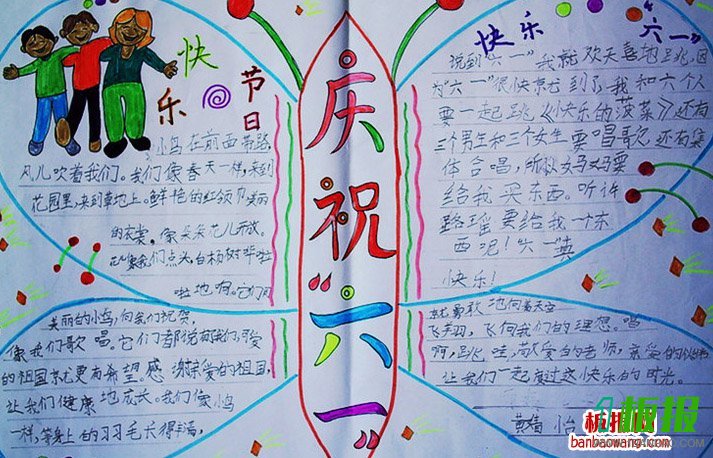 快乐
节日
小鸟在前面带路,
风儿吹着我们。我们像春天一样,来到
花园里,来到草地上。鲜艳的红领巾,美丽
的衣裳,像朵朵花儿开放。
花儿向我们点头,白杨树哗啦
啦地响。它们用
美丽的小鸟,向我们祝贺,
像我们歌唱。它们都说祝我们,可爱
的祖国就更有希望。感谢亲爱的祖国,
让我们健康地成长。我们像小鸟
一样,等身上的羽毛长得丰满,
庆祝“六一”
快乐“六一”
说到“六一”我就欢天喜地跳,因
为“六一”很快就到了,我和六个人
要一起跳《快乐的菠菜》还有
三个男生和三个女生要唱歌,还有集
体合唱,所以妈妈要
给我买东西。听许
路瑶要给我一个东
西呢!“六一”真
快乐!
就勇敢地向着天空
飞翔,飞向我们的理想。唱
啊,跳哇,敬爱的老师,亲爱的伙伴
让我们一起度过这快乐的时光。
板报网
banbaowang.com
板报